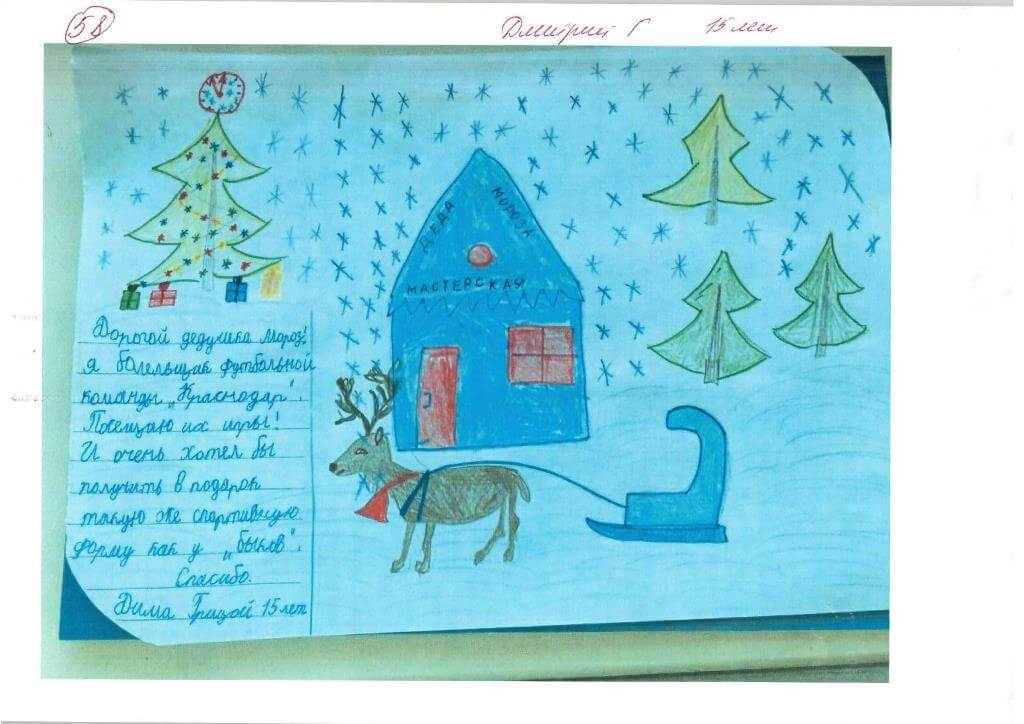 58
Дмитрий Г 15 лет
ДЕДА МОРОЗА
МАСТЕРСКАЯ
Дорогой дедушка Мороз!
я болельщик футбольной
команды „Краснодар".
Посещаю их игры!
И очень хотел бы
получить в подарок
такую же спортивную
форму как у „быков".
Спасибо.
Дима Грицай 15 лет